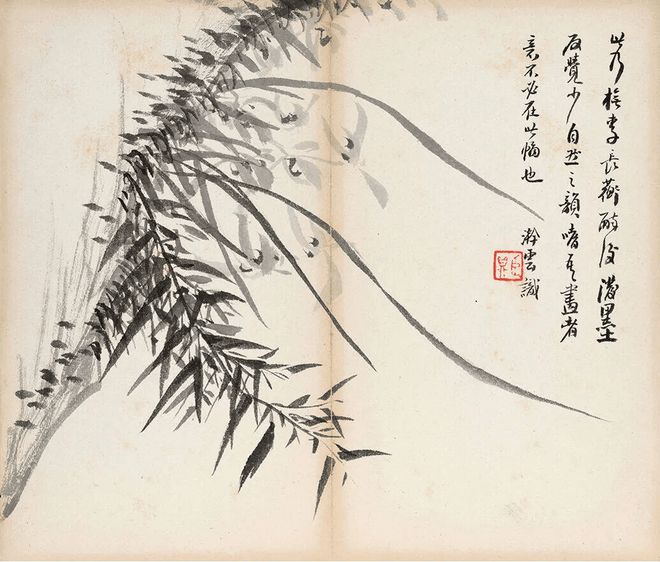 此乃檇李長蘅醉後潑墨
反覺少自然之韻嗜其畫者
意不必在此幅也
雲識